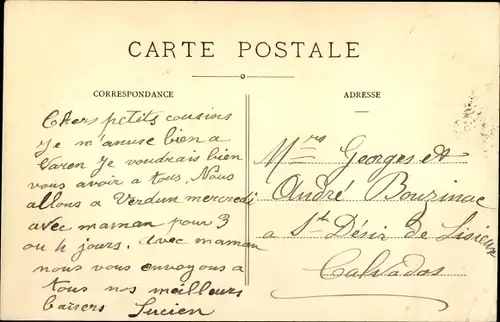 CARTE POSTALE
CORRESPONDANCE
Chers petits cousins
Je m'amuse bien a
Varen Je voudrais bien
vous avoir a tous. Nous
allons a Verdun mercredi
avec maman pour 3
ou 4 jours. Avec maman
nous vous envoyons a
tous nos meilleurs
baisers Lucien
ADRESSE
Mrs Georges et
André Bourinac
a St Désir de Lisieux
Calvados